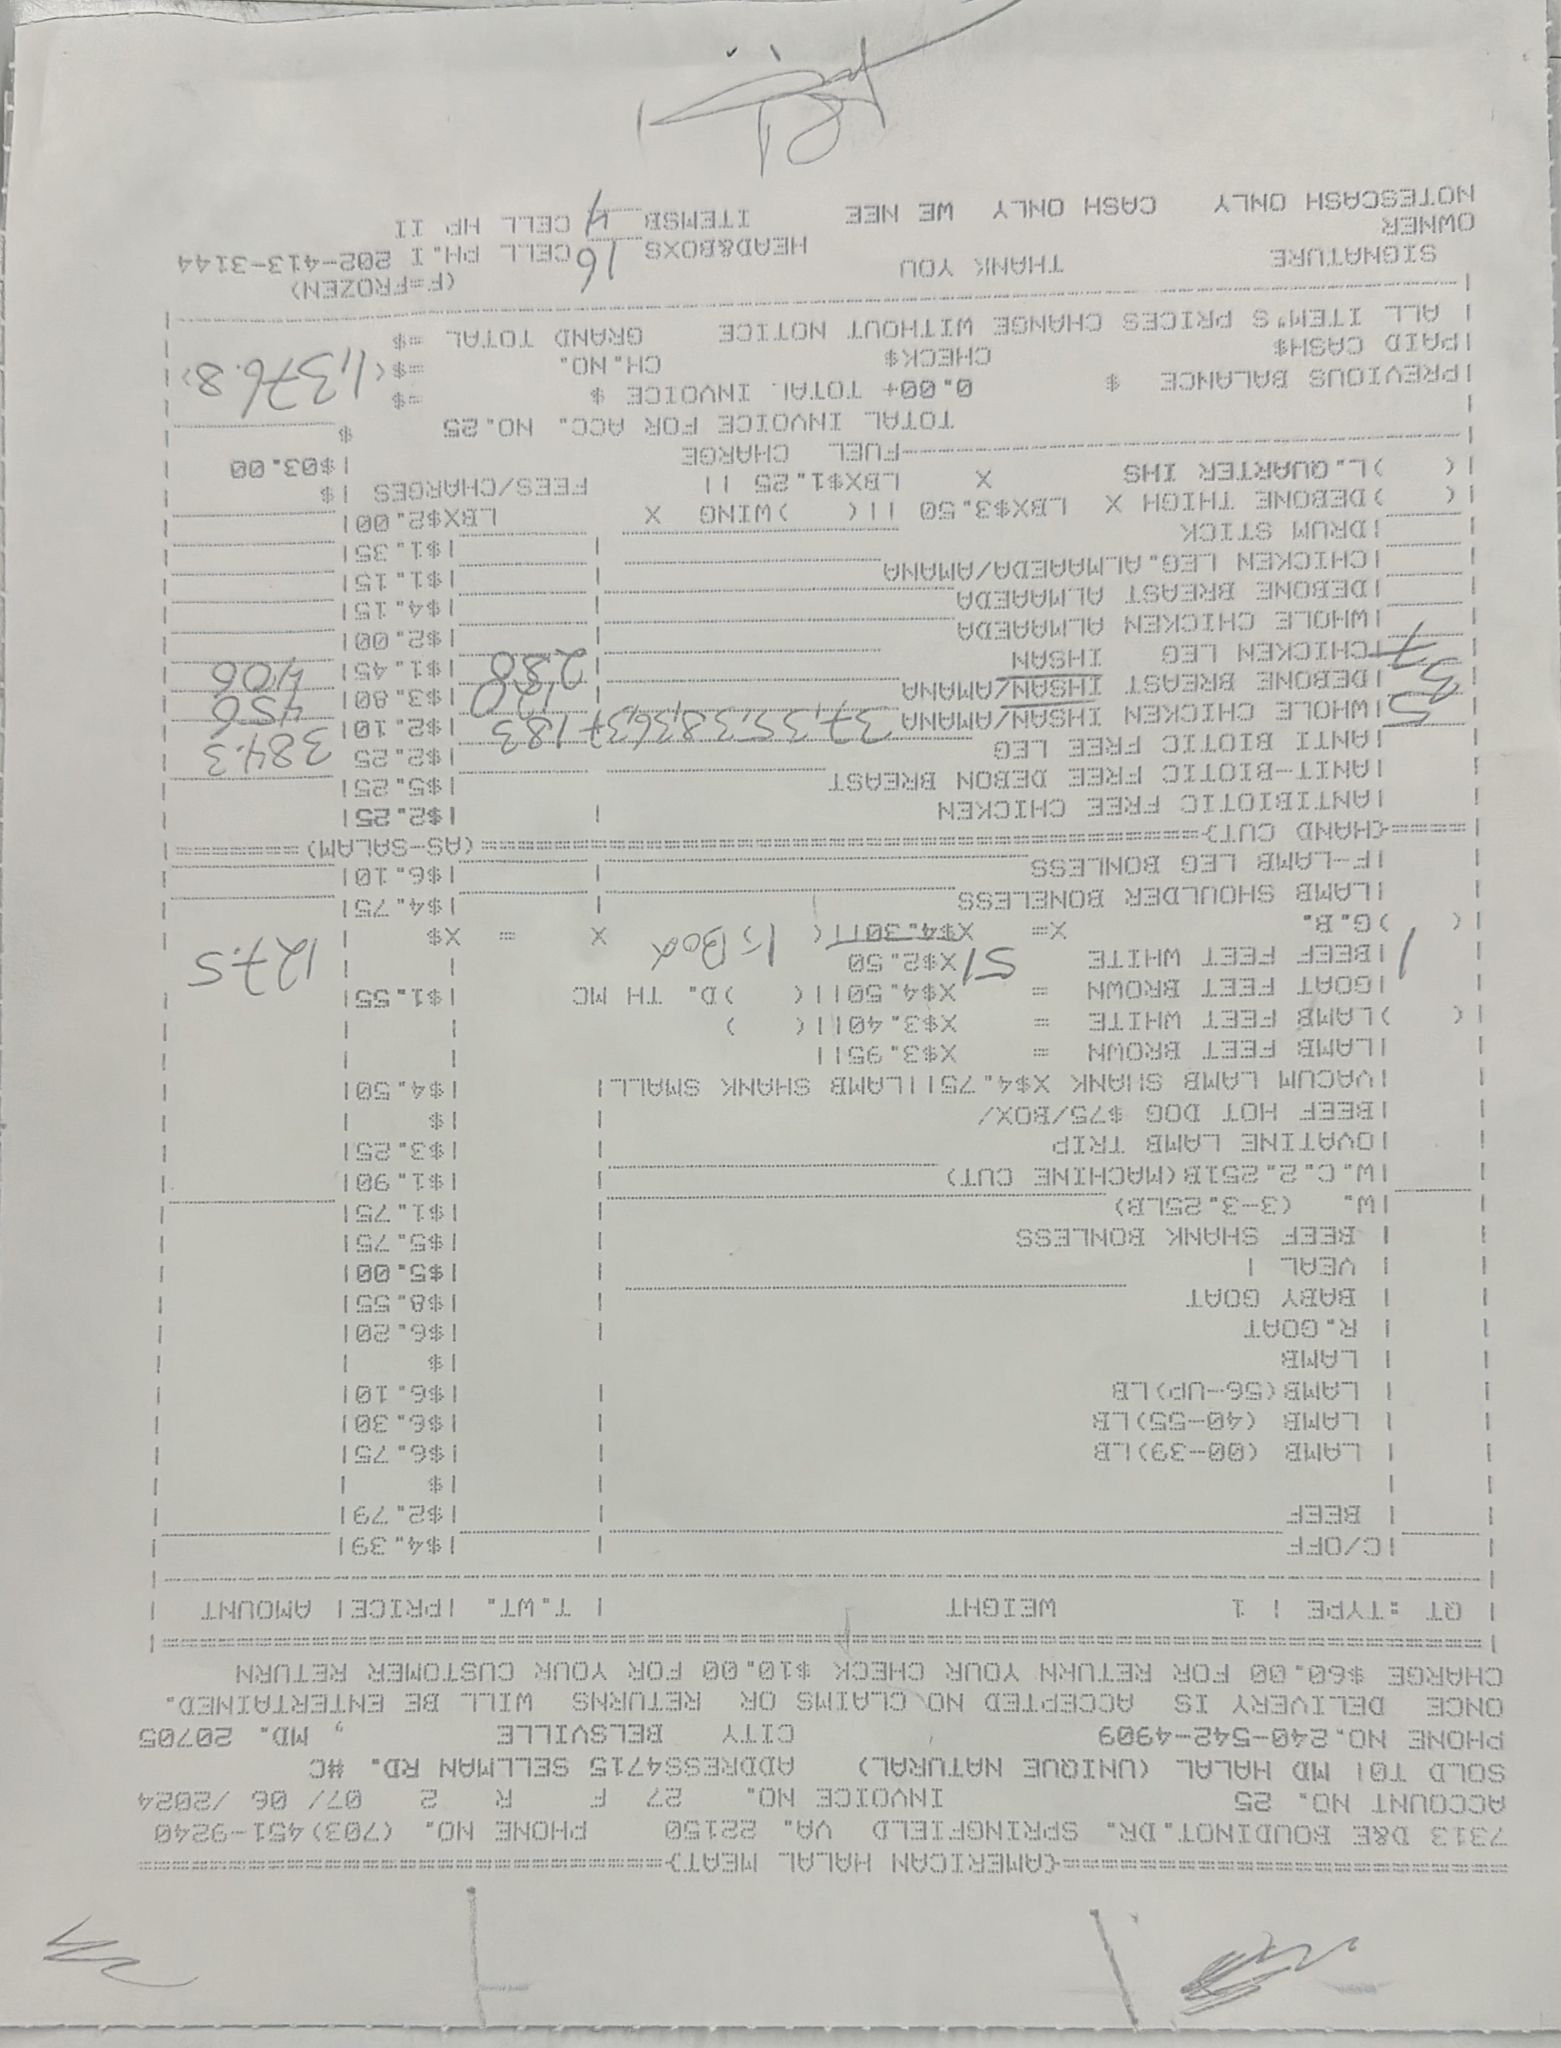 {AMERICAN HALAL MEAT}
7313 D&E BOUDINOT.DR. SPRINGFIELD VA. 22150 PHONE NO. (703)451-9240
ACCOUNT NO. 25 INVOICE NO. 27 F R 2 07/ 06 /2024
SOLD TO| MD HALAL (UNIQUE NATURAL) ADDRESS4715 SELLMAN RD. #C
PHONE NO.240-542-4909 CITY BELSVILLE , MD. 20705
ONCE DELIVERY IS ACCEPTED NO CLAIMS OR RETURNS WILL BE ENTERTAINED.
CHARGE $60.00 FOR RETURN YOUR CHECK $10.00 FOR YOUR CUSTOMER RETURN
| QT :TYPE | 1 WEIGHT | T.WT. |PRICE| AMOUNT |
|C/OFF | |$4.39|
| BEEF |$2.79|
| |$ |
| LAMB (00-39)LB | |$6.75|
| LAMB (40-55)LB | |$6.30|
| LAMB(56-UP)LB | |$6.10|
| LAMB |$ |
| R.GOAT | |$6.20|
| BABY GOAT | |$8.55|
| VEAL | | |$5.00|
| BEEF SHANK BONLESS |$5.75|
|W. (3-3.25LB) | |$1.75|
|W.C.2.25lB(MACHINE CUT) | |$1.90|
|OVATINE LAMB TRIP |$3.25|
|BEEF HOT DOG $75/BOX/ |$ |
|VACUM LAMB SHANK X$4.75||LAMB SHANK SMALL| |$4.50|
|LAMB FEET BROWN = X$3.95|| | |
|( )LAMB FEET WHITE = X$3.40||( ) | |
|GOAT FEET BROWN = X$4.50||( )D. TH MC |$1.55|
1 |BEEF FEET WHITE 51 X$2.50 | | 127.5
|( )G.B. X= X$4.30||( 1, Box X = X$ |
|LAMB SHOULDER BONELESS | |$4.75|
|F-LAMB LEG BONLESS | |$6.10|
|====={HAND CUT}=====(AS-SALAM)=======|
|ANTIBIOTIC FREE CHICKEN | |$2.25|
|ANIT-BIOTIC FREE DEBON BREAST |$5.25|
|ANTI BIOTIC FREE LEG |$2.25
5 |WHOLE CHICKEN IHSAN/AMANA 37,35,38,36,37 183 |$2.10| 384.3
3 |DEBONE BREAST IHSAN/AMANA 120 |$3.80| 456
7 |CHICKEN LEG IHSAN 280 |$1.45| 406
|WHOLE CHICKEN ALMAAEDA | |$2.00|
|DEBONE BREAST ALMAAEDA | |$4.15|
|CHICKEN LEG.ALMAAEDA/AMANA | |$1.15|
|DRUM STICK | |$1.35|
|( )DEBONE THIGH X LBX$3.50 ||( )WING X LBX$2.00|
|( )L.QUARTER IHS X LBX$1.25 || FEES/CHARGES |$
FUEL CHARGE |$03.00
TOTAL INVOICE FOR ACC. NO.25 $
|PREVIOUS BALANCE $ 0.00+ TOTAL INVOICE $ =$
|PAID CASH$ CHECK$ CH.NO. =$( 1,376.8 )
| ALL ITEM'S PRICES CHANGE WITHOUT NOTICE GRAND TOTAL =$
(F=FROZEN)
SIGNATURE THANK YOU HEAD&BOXS 16 CELL PH.I 202-413-3144
OWNER ITEMSB 4 CELL HP II
NOTESCASH ONLY CASH ONLY WE NEE